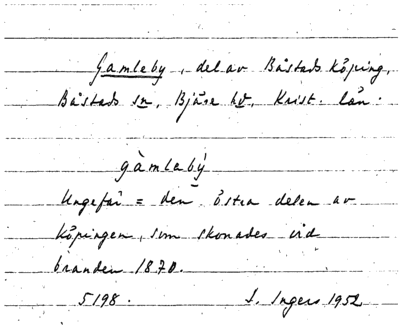 Gamleby, del av Båstads köping,
Båstads sn, Bjäre hd, Krist. län.
gàmlebý
Ungefär = den östra delen av
köpingen, som skonades vid
branden 1870.
5198. I. Ingers 1952